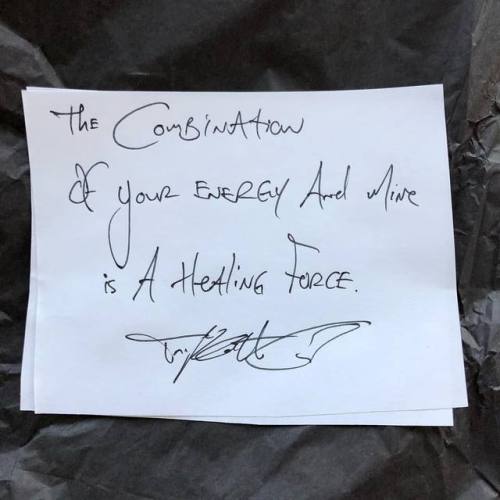 The Combination
Of your ENERGY And Mine
is A Healing Force.